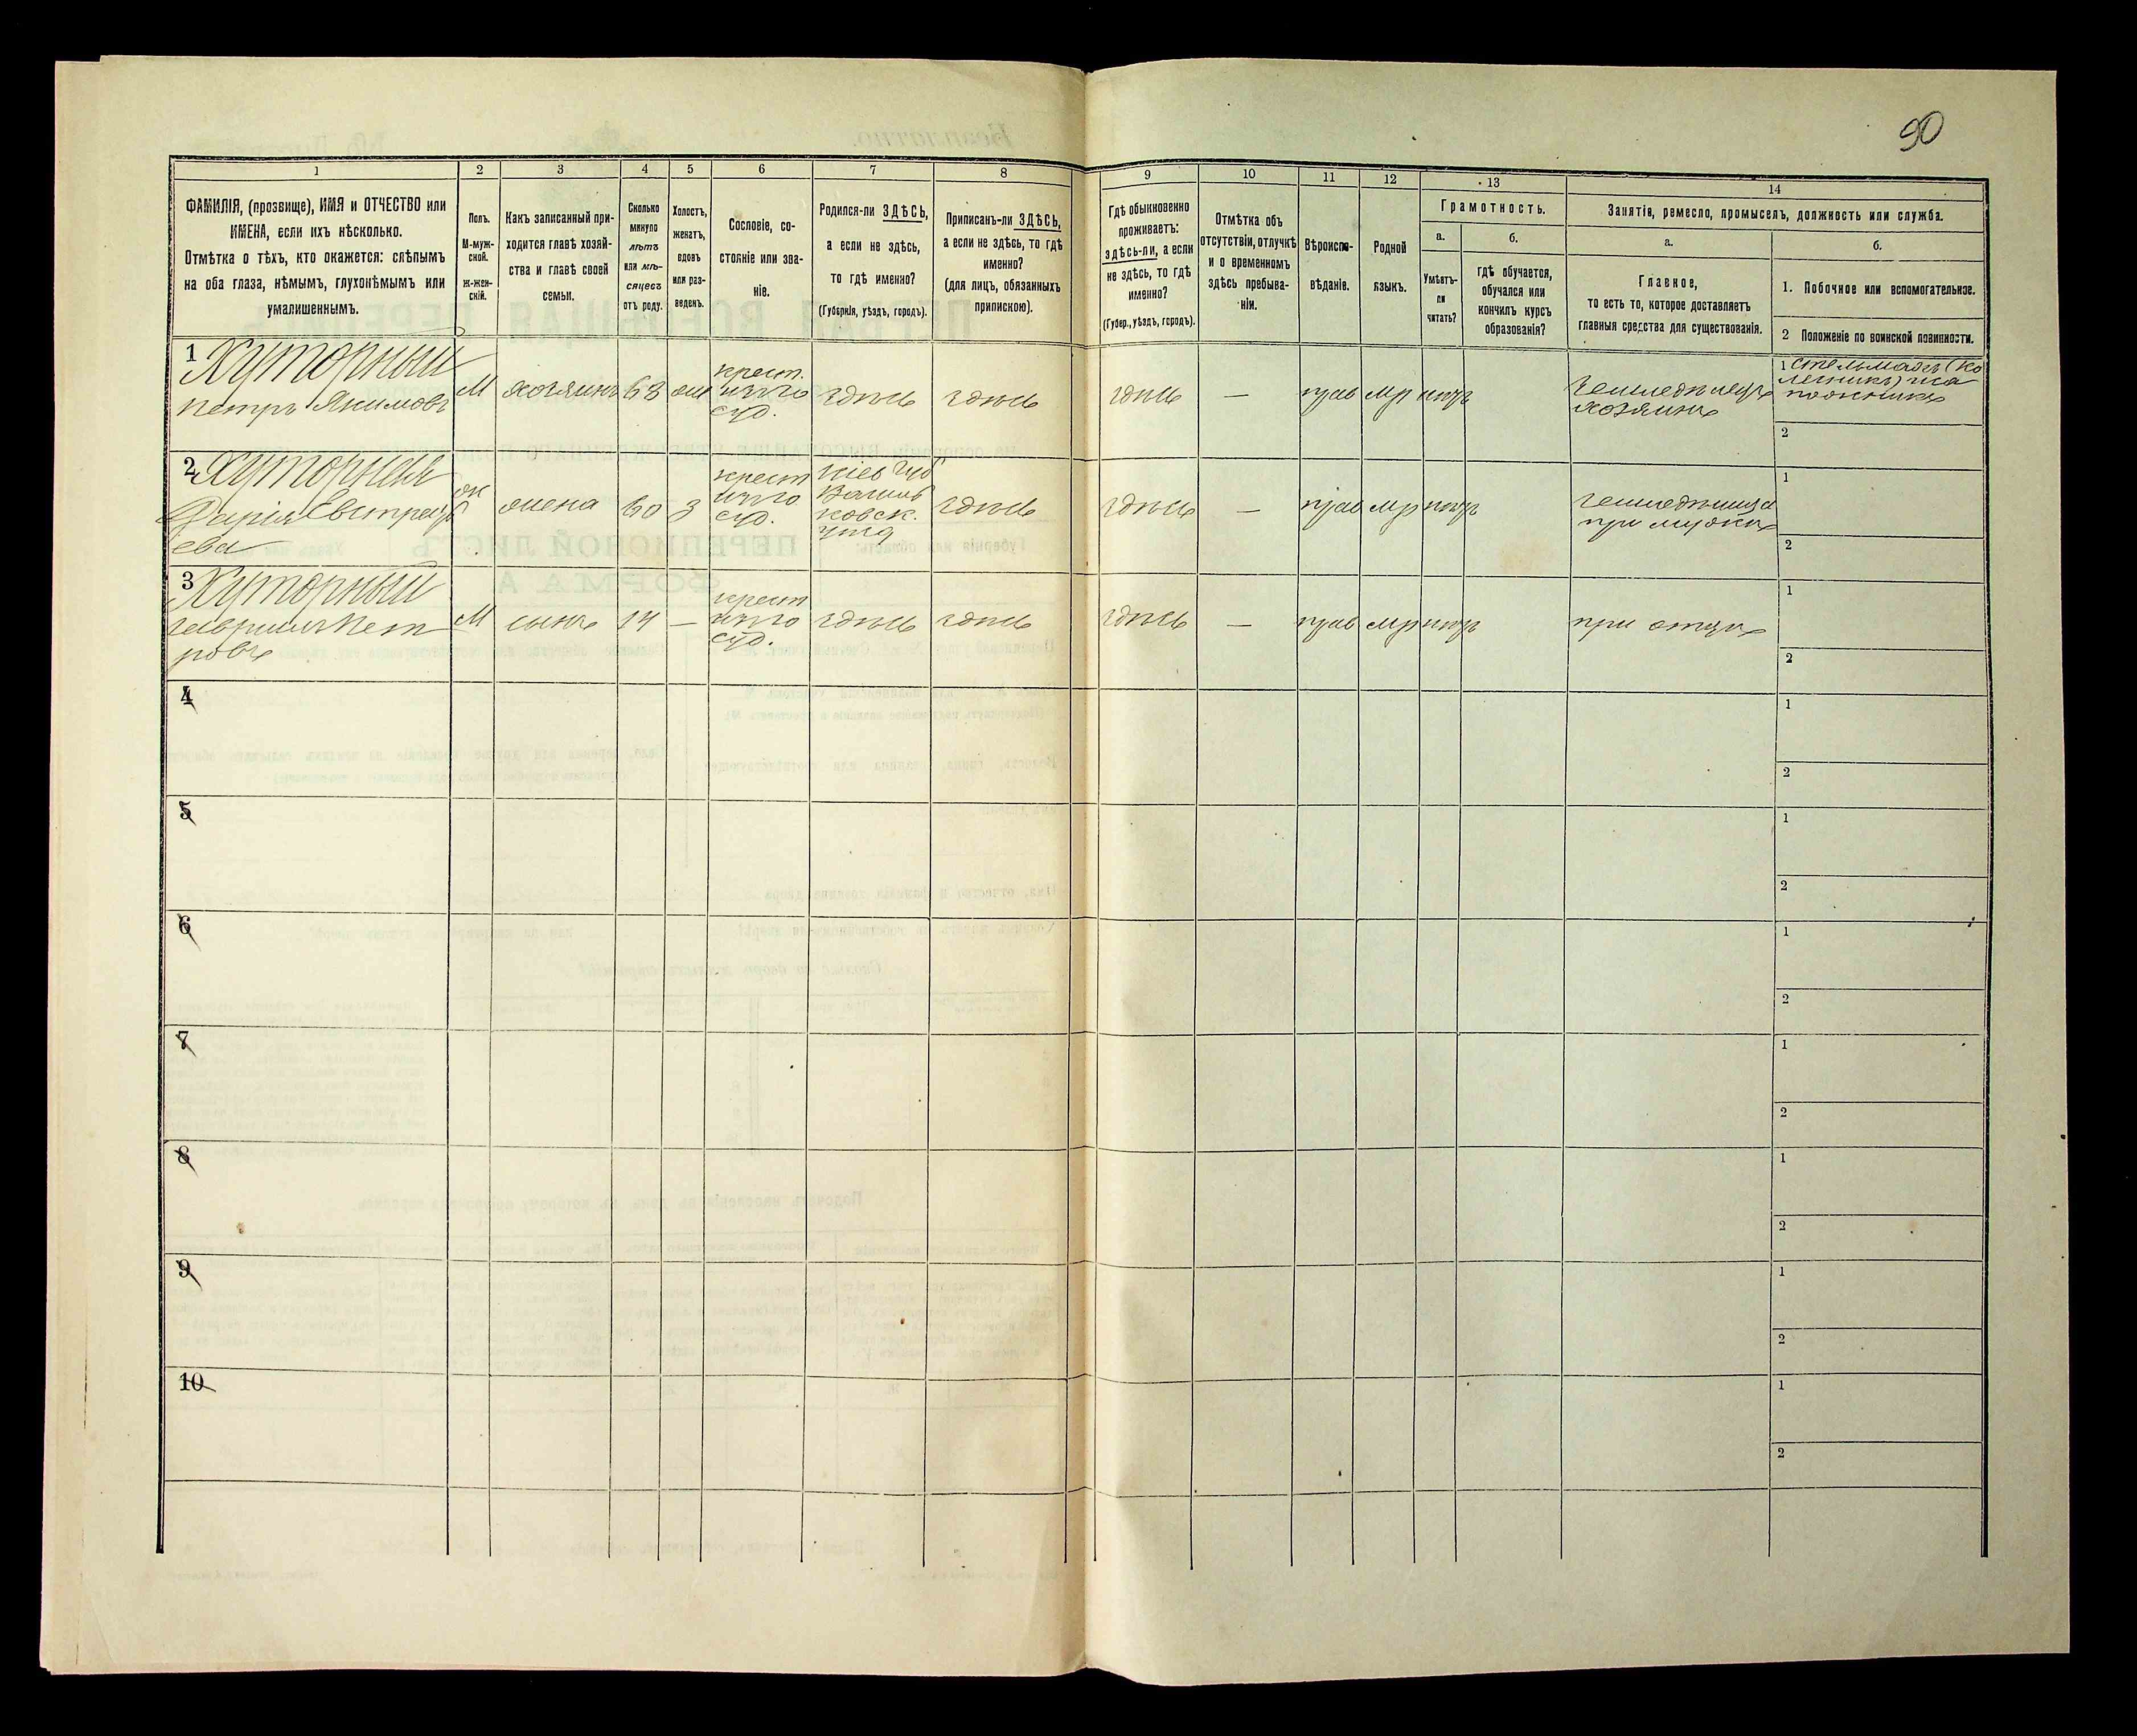 90
1 2 3 4 5 6 7 8 9 10 11 12 13 14
ФАМИЛІЯ, (прозвище), ИМЯ и ОТЧЕСТВО или
ИМЕНА, если ихъ нѣсколько.
Отмѣтка о тѣхъ, кто окажется: слѣпымъ
на оба глаза, нѣмымъ, глухонѣмымъ или
умалишеннымъ.
Полъ.
М-муж-
ской.
ж-жен-
скій.
Какъ записанный при-
ходится главѣ хозяй-
ства и главѣ своей
семьи.
Сколько
минуло
лѣтъ
или мѣ-
сяцевъ
отъ роду.
Холостъ,
женатъ,
вдовъ
или раз-
веденъ.
Сословіе, со-
стояніе или зва-
ніе.
Родился-ли ЗДѢСЬ,
а если не здѣсь,
то гдѣ именно?
(Губернія, уѣздъ, городъ).
Приписанъ-ли ЗДѢСЬ,
а если не здѣсь, то гдѣ
именно?
(для лицъ, обязанныхъ
припискою).
Гдѣ обыкновенно
проживаетъ:
здѣсь-ли, а если
не здѣсь, то гдѣ
именно?
(Губер., уѣздъ, городъ).
Отмѣтка объ
отсутствіи, отлучкѣ
и о временномъ
здѣсь пребыва-
ніи.
Вѣроиспо-
вѣданіе.
Родной
языкъ.
Грамотность.
а.
Умѣетъ-
ли
читать?
б.
гдѣ обучается,
обучался или
кончилъ курсъ
образованія?
Занятія, ремесло, промыселъ, должность или служба.
а.
Главное,
то есть то, которое доставляетъ
главныя средства для существованія.
б.
1. Побочное или вспомогательное.
2 Положеніе по воинской повинности.
1 Хуторный
Петръ Якимовъ
М
хозяинъ
63
крест.
здѣсь
здѣсь
здѣсь
—
прав
мр
нѣтъ
земледѣлецъ
хозяинъ
1 стельмахъ (ко
2
2 Хуторная
Дарія Евстрафі
ева
ж
жена
60
з
крест
Кіев губ
Василь
ковск.
уѣзд
здѣсь
здѣсь
—
прав
мр
нѣтъ
земледѣлица
при мужѣ
1
2
3 Хуторный
Гавриилъ Пет
ровъ
М
сынъ
14
—
крест
здѣсь
здѣсь
здѣсь
—
прав
мр
нѣтъ
при отцѣ
1
2
4
1
2
5
1
2
6
1
2
7
1
2
8
1
2
9
1
2
10
1
2